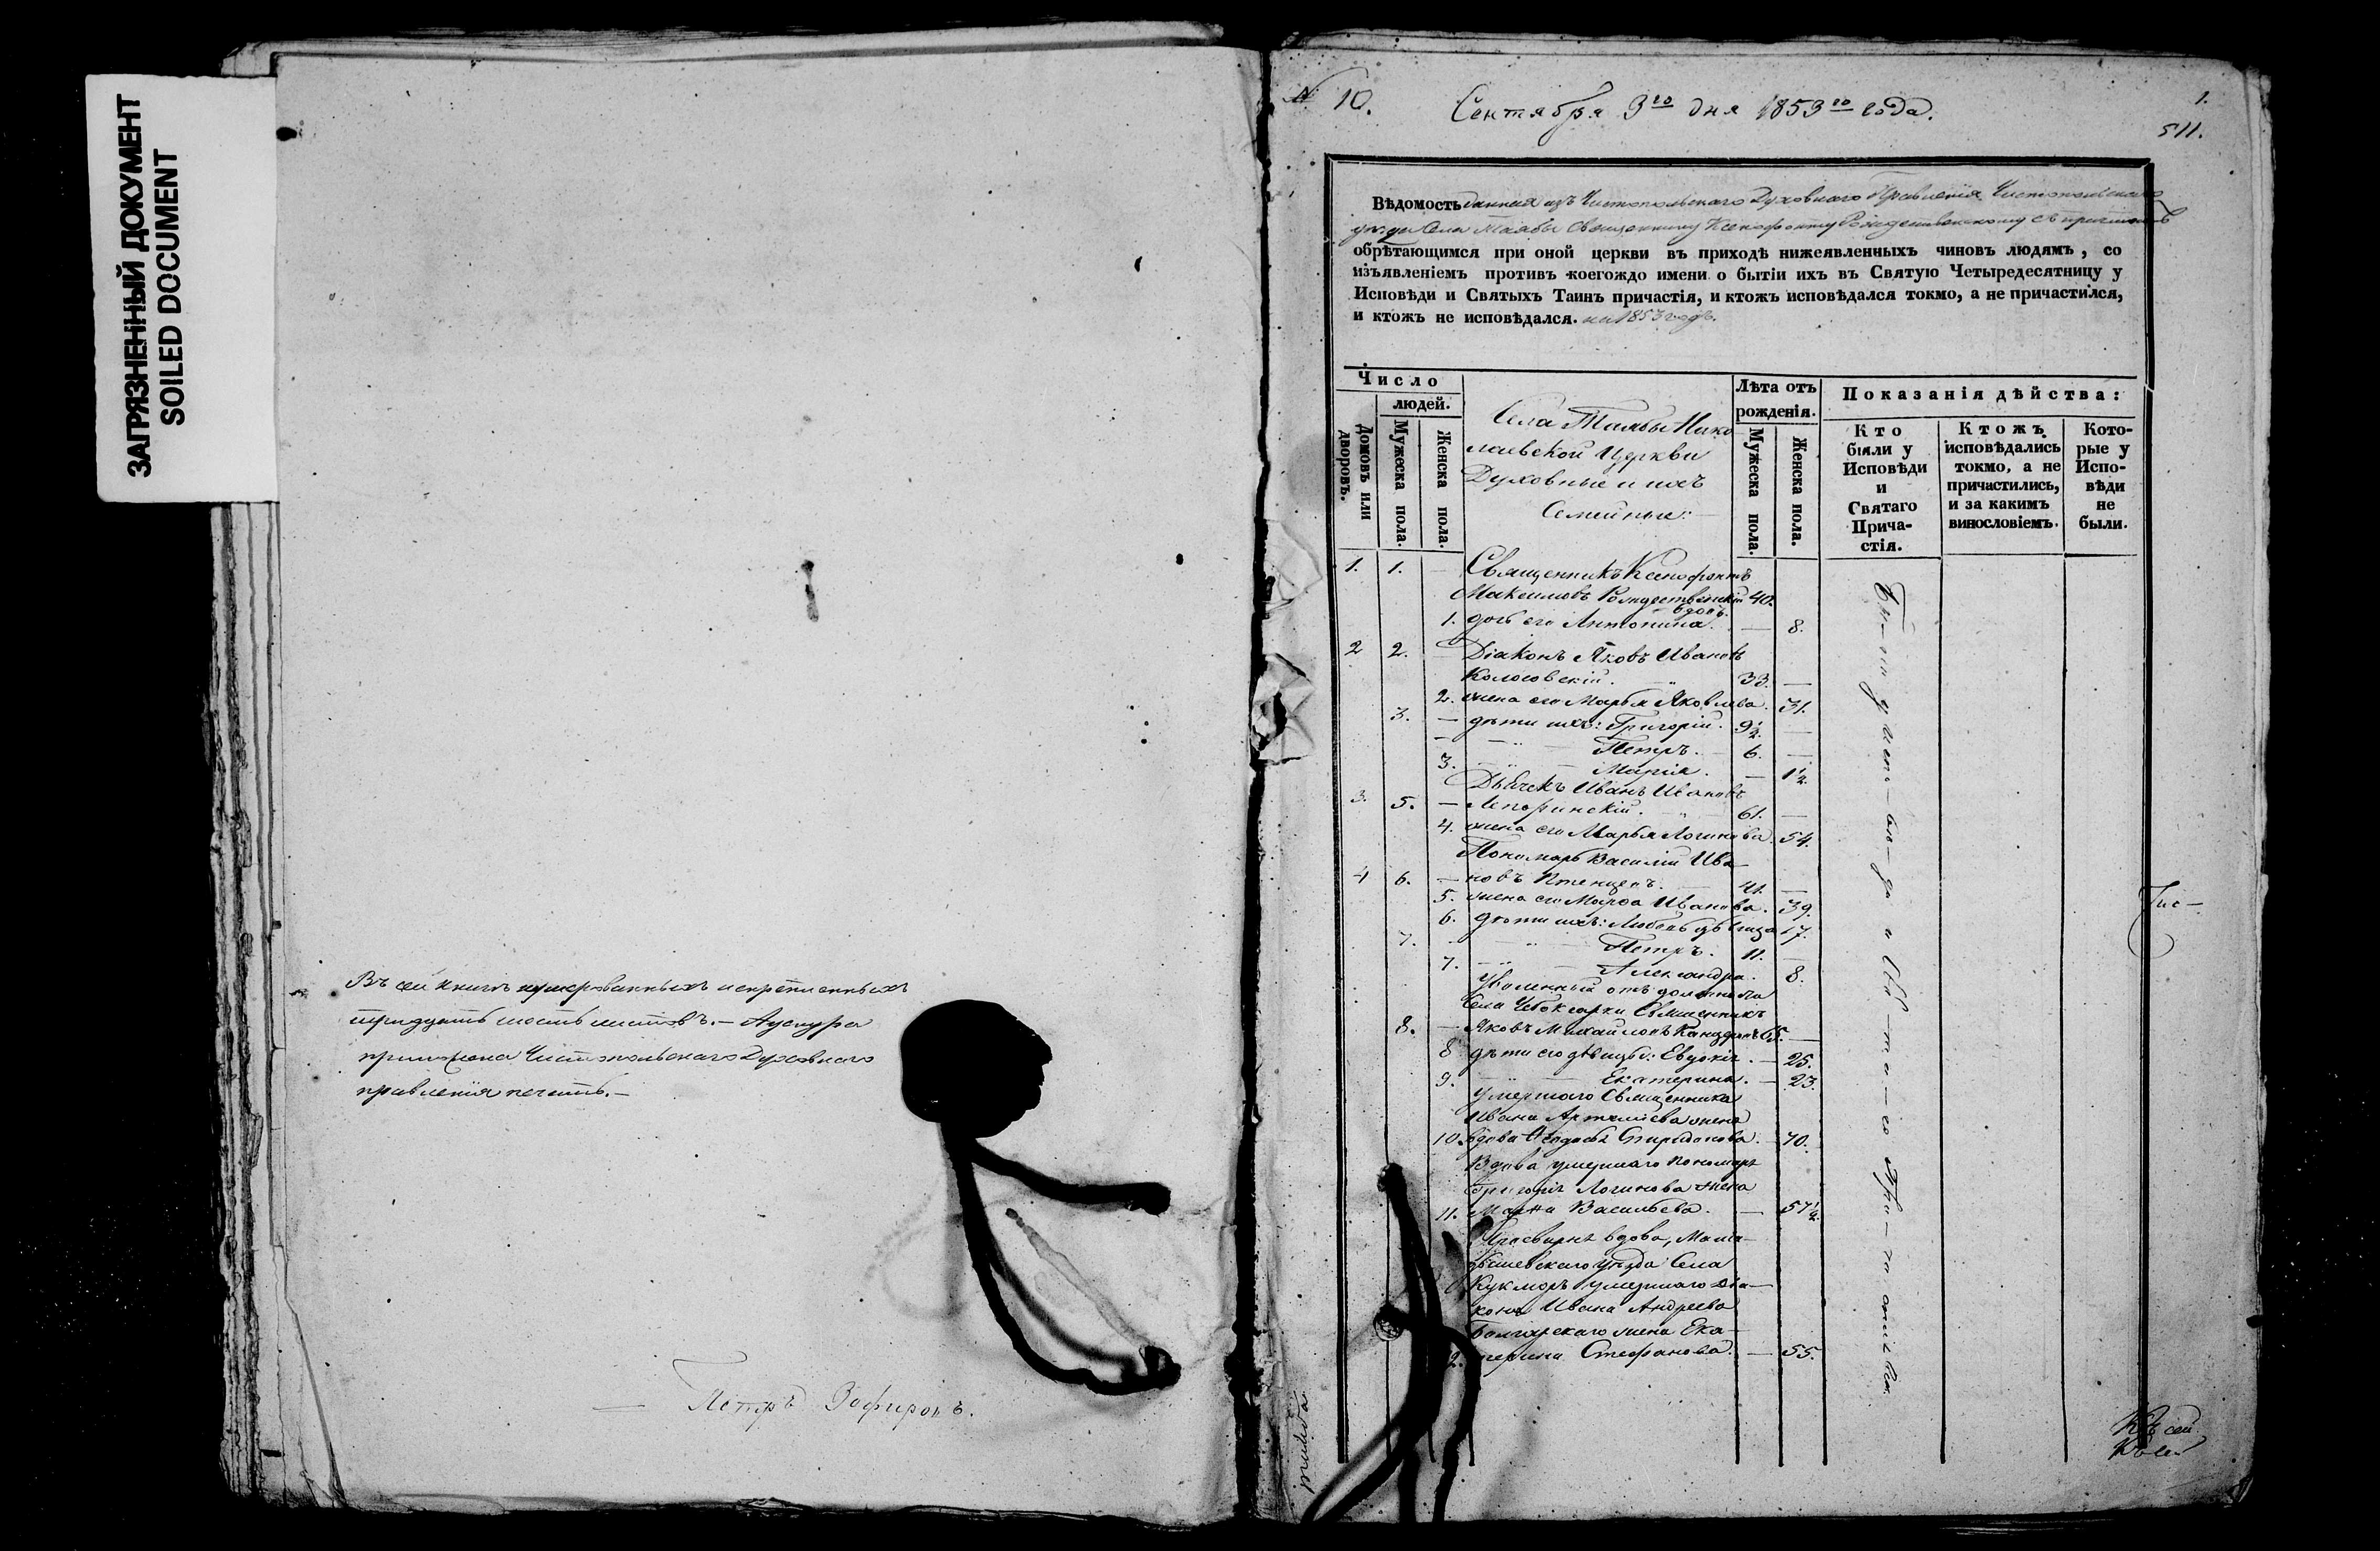 ЗАГРЯЗНЕННЫЙ ДОКУМЕНТ
SOILED DOCUMENT
Въ сей книгѣ нумерованныхъ и скрѣпленныхъ
тридцать шесть листовъ. – А у снура
приложена Чистопольскаго Духовнаго
правленія печать. –
Петръ Зефировъ.
№ 10.
Сентября 3го дня 1853го года.
1.
511.
Вѣдомость данная изъ Чистопольскаго Духовнаго Правленія Чистопольскаго
уѣзда Села Таябы Священнику Ксенофонту Рождественскому съ причтомъ
обрѣтающимся при оной церкви въ приходѣ нижеявленныхъ чиновъ людямъ, со
изъявленіемъ противъ коегождо имени о бытіи ихъ въ Святую Четыредесятницу у
Исповѣди и Святыхъ Таинъ причастія, и ктожъ исповѣдался токмо, а не причастился,
и ктожъ не исповѣдался. на 1853 годъ.
Число
людей.
Домовъ или дворовъ.
Мужеска пола.
Женска пола.
Села Таябы Нико
лаевской Церкви
Духовные и ихъ
Семейные:
Лѣта отъ
рожденія.
Мужеска пола.
Женска пола.
Показанія дѣйства:
Кто
были у
Исповѣди
и
Святаго
Прича-
стія.
Ктожъ
исповѣдались
токмо, а не
причастились,
и за какимъ
винословіемъ.
Кото-
рые у
Испо-
вѣди
не
были.
1. 1. — Священникъ Ксенофонтъ
Максимовъ Рождественскій 40.
вдовъ.
1. дочь его Антонина. — 8.
2 2. — Діаконъ Яковъ Ивановъ
33. —
2. жена его Марья Яковлева. 31.
3. — дѣти ихъ: Григорій. 9½. —
— Петръ. 6. —
3. Марія. — 1½.
Дьячекъ Иванъ Ивановъ
3. 5. — Лепоринскій. 61. —
4. жена его Марья Логинова. 54.
Пономарь Василій Ива-
4 6. — новъ 41. —
5. жена его Марѳа Иванова. 39.
6. дѣти ихъ: Любовь дѣвица 17.
7. Петръ. 11. —
7. Александра. 8.
Уволенный отъ должности
Села Чебоксарки Священникъ
8. — Яковъ Михайловъ 65. —
8 дѣти его дѣвицы: Евдокія. — 25.
9. Екатерина. — 23.
Умершаго Священника
Ивана Артемьева жена
10. вдова Спиридонова. — 70.
Вдова умершаго пономаря
Григорія Логинова жена
11. Васильева. — 57½.
Просвирня вдова, Мама-
дышевскаго уѣзда Села
Кукморъ умершаго діа-
кона Ивана Андреева
Болгарскаго жена Ека-
терина Стефанова. — 55.
Къ сей